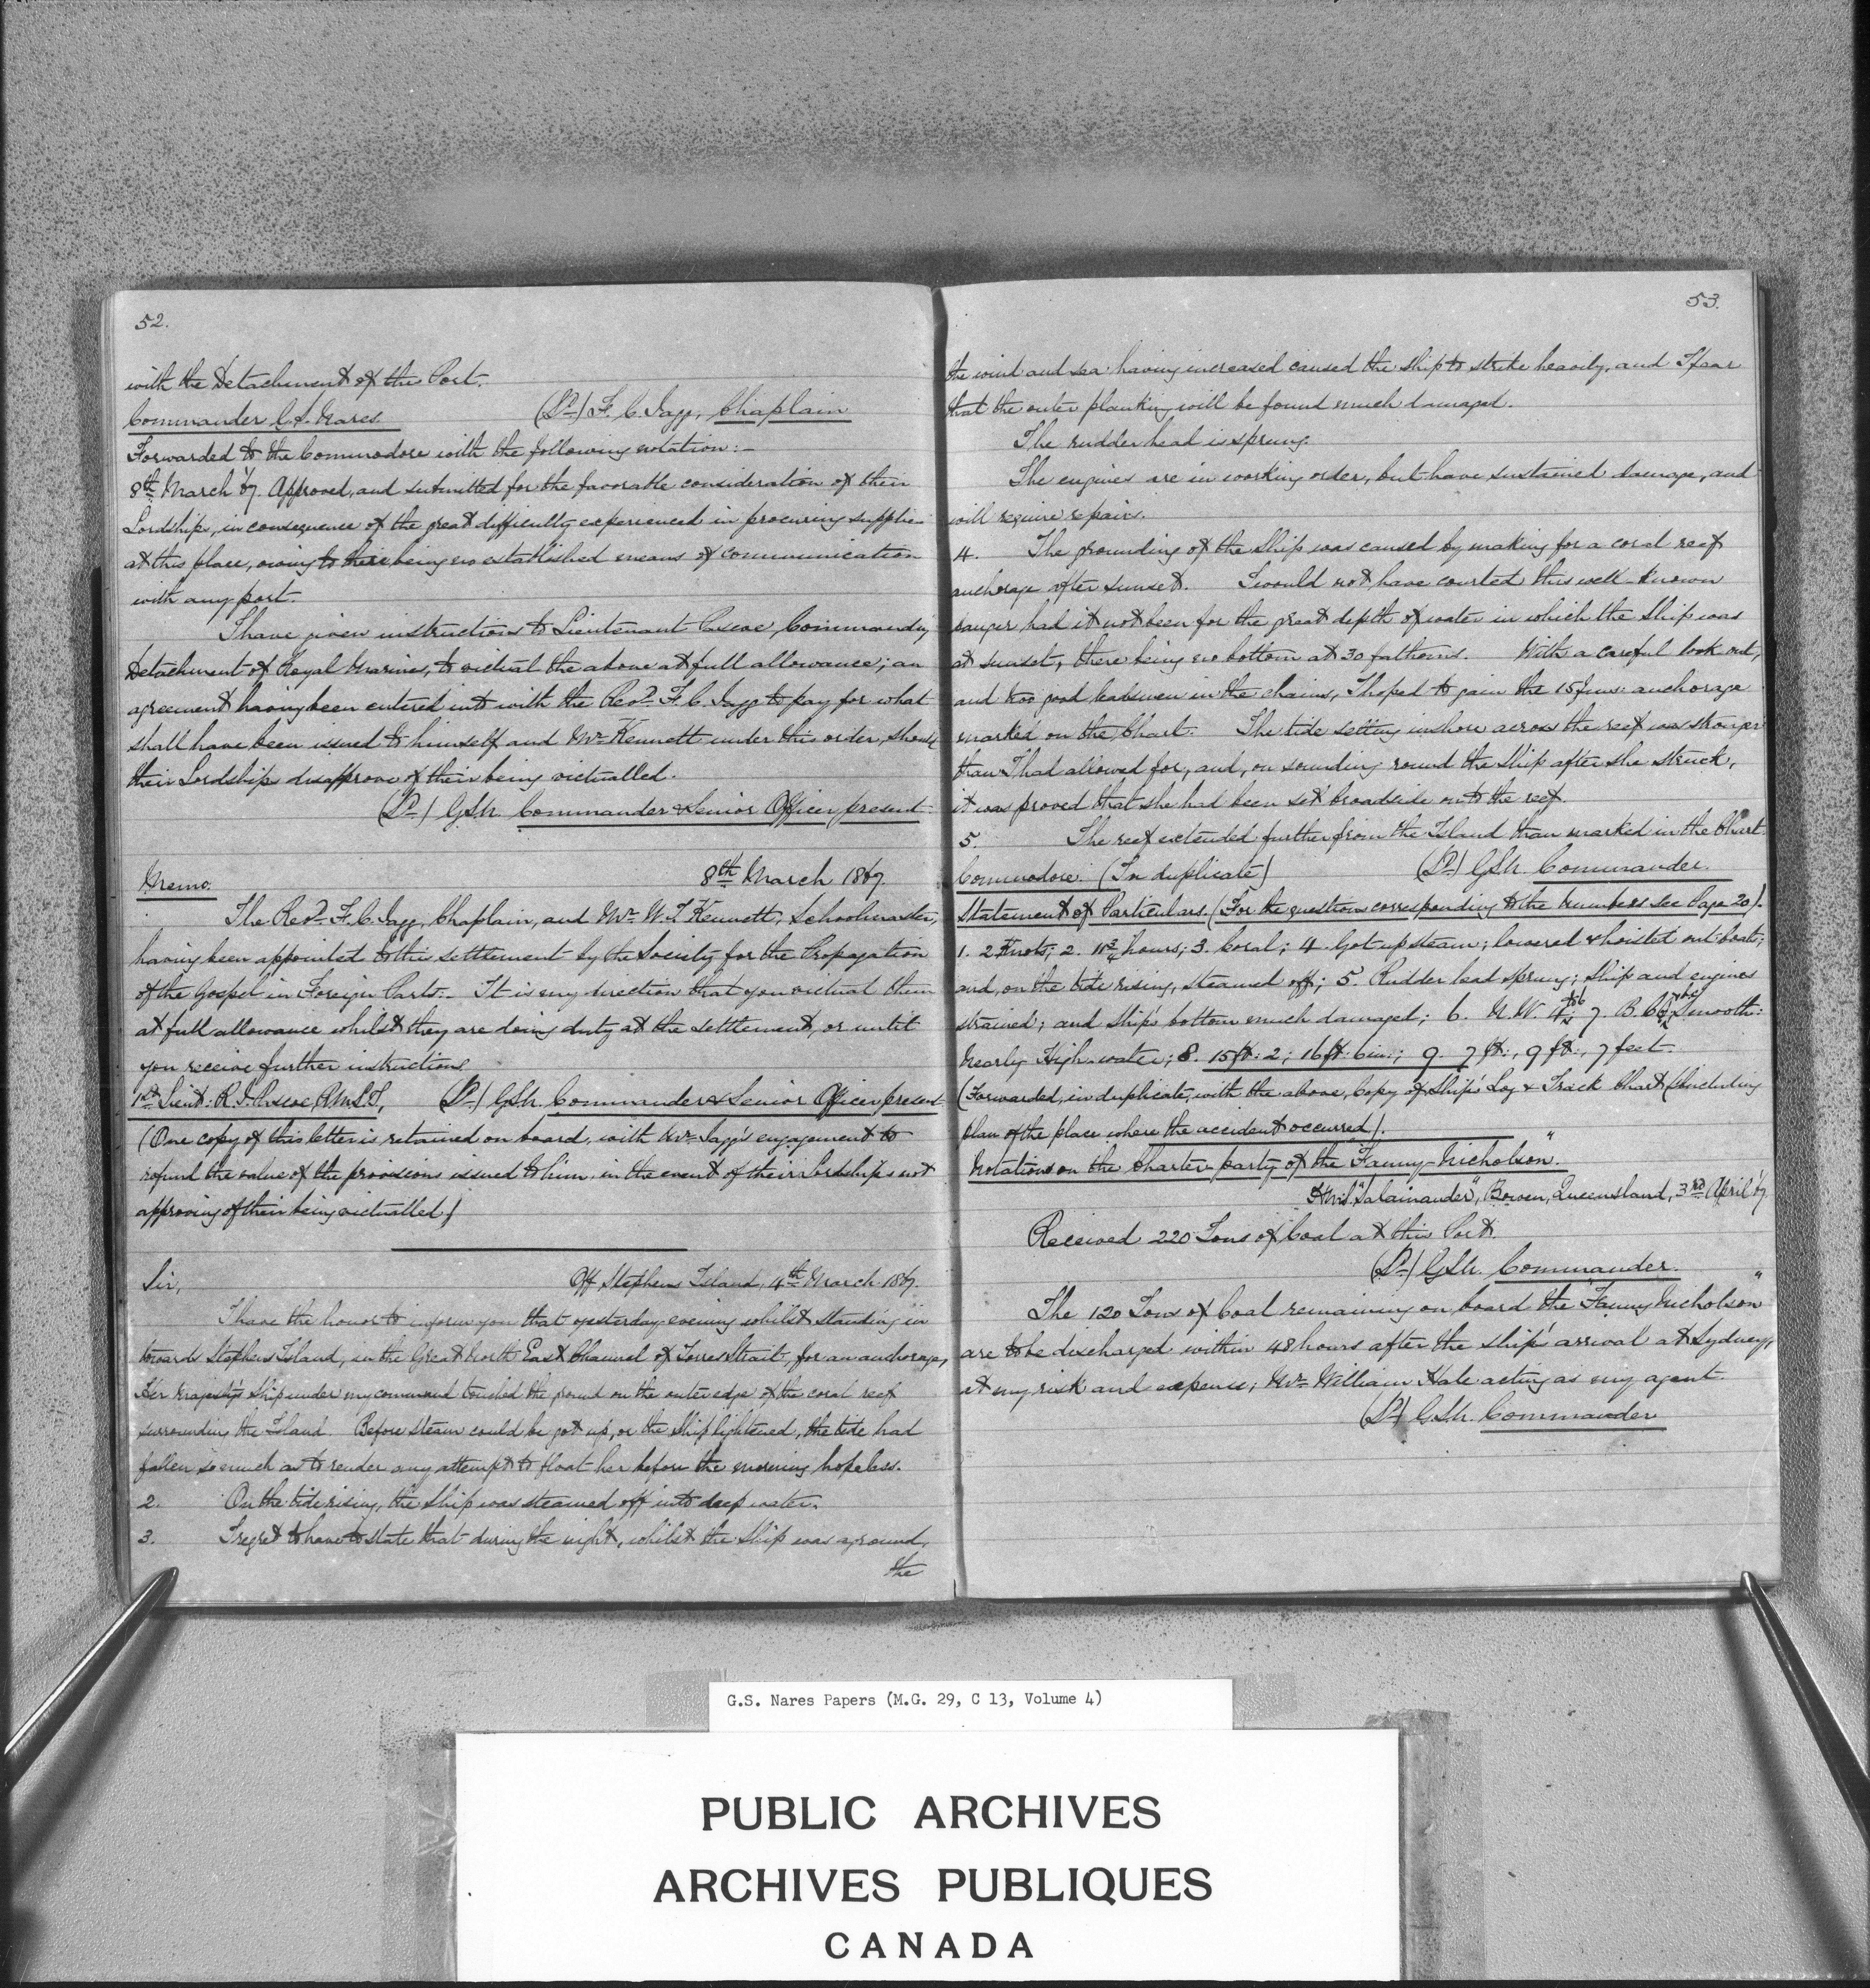 52.
with the Detachment of the Port.
Commander G.S. Nares. (Sd) F. C. Jagg, Chaplain
Forwarded to the Commodore with the following notation:—
8th March '67. Approved, and submitted for the favorable consideration of their
Lordships, in consequence of the great difficulty experienced in procuring supplies
at this place, owing to there being no established means of communication
with any port.
I have given instructions to Lieutenant Pascoe, Commanding
Detachment of Royal Marines, to victual the above at full allowance; an
agreement having been entered into with the Revd. F. C. Jagg to pay for what
shall have been issued to himself and Mr. Kennett under this order, should
their Lordships disapprove of their being victualled.
(Sd) GSN. Commander & Senior Officer present.
Memo. 8th March 1867.
The Revd. F. C. Jagg, Chaplain, and Mr. W. T. Kennett, Schoolmaster,
having been appointed to this settlement by the Society for the Propagation
of the Gospel in Foreign Parts:— It is my direction that you victual them
at full allowance whilst they are doing duty at the settlement, or until
you receive further instructions.
1st Lieut: R. J. Pascoe, R.M.L.I. (Sd) GSN. Commander & Senior Officer present.
(One copy of this letter is retained on board, with Mr. Jagg's engagement to
refund the value of the provisions issued to him, in the event of their Lordships not
approving of their being victualled)
Sir, Off Stephens Island, 4th March 1867.
I have the honor to inform you that yesterday evening whilst standing in
towards Stephens Island, in the Great North East Channel of Torres Strait, for an anchorage,
Her Majesty's Ship under my command touched the ground on the outer edge of the coral reef
surrounding the Island. Before steam could be got up, or the Ship lightened, the tide had
fallen so much as to render any attempt to float her before the morning hopeless.
2. On the tide rising, the Ship was steamed off into deep water.
3. I regret to have to state that during the night, whilst the Ship was aground,
the
53.
the wind and sea having increased caused the ship to strike heavily, and I fear
that the outer planking will be found much damaged.
The rudder head is sprung.
The engines are in working order, but have sustained damage, and
will require repairs.
4. The grounding of the Ship was caused by making for a coral reef
anchorage after sunset. I would not have courted this well-known
danger had it not been for the great depth of water in which the Ship was
at sunset, there being no bottom at 30 fathoms. With a careful look out,
and two good leadsmen in the chains, I hoped to gain the 15 fms: anchorage
marked on the Chart. The tide setting inshore across the reef was stronger
than I had allowed for, and, on sounding round the Ship after she struck,
it was proved that she had been set broadside onto the reef.
5. The reef extended further from the Island than marked in the Chart.
Commodore. (In duplicate) (Sd) GSN. Commander.
Statement of Particulars. (For the questions corresponding to the numbers see Page 20).
1. 2 Knots; 2. 11¾ hours; 3. Coral; 4. Got up steam; lowered & hoisted out boats;
and, on the tide rising, steamed off; 5. Rudder head sprung; Ship and engines
strained; and Ship's bottom much damaged; 6. N.W. 7. B.C. Smooth:
Nearly High-water; 8. 15 ft: 2; 16 ft: 6 in:; 9. 7 ft:, 9 ft:, 7 feet.
(Forwarded, in duplicate, with the above, Copy of Ship's Log & Track Chart (including
plan of the place where the accident occurred).
Notations on the Charter-party of the "Fanny-Nicholson".
H.M.S. "Salamander", Bowen, Queensland, 3rd April '67.
Received 220 Tons of Coal at this Port.
(Sd) GSN. Commander.
The 120 Tons of Coal remaining on board the "Fanny Nicholson"
are to be discharged within 48 hours after the ship's arrival at Sydney,
at my risk and expence; Mr. William Hale acting as my agent.
(Sd) GSN. Commander
G.S. Nares Papers (M.G. 29, C 13, Volume 4)
PUBLIC ARCHIVES
ARCHIVES PUBLIQUES
CANADA